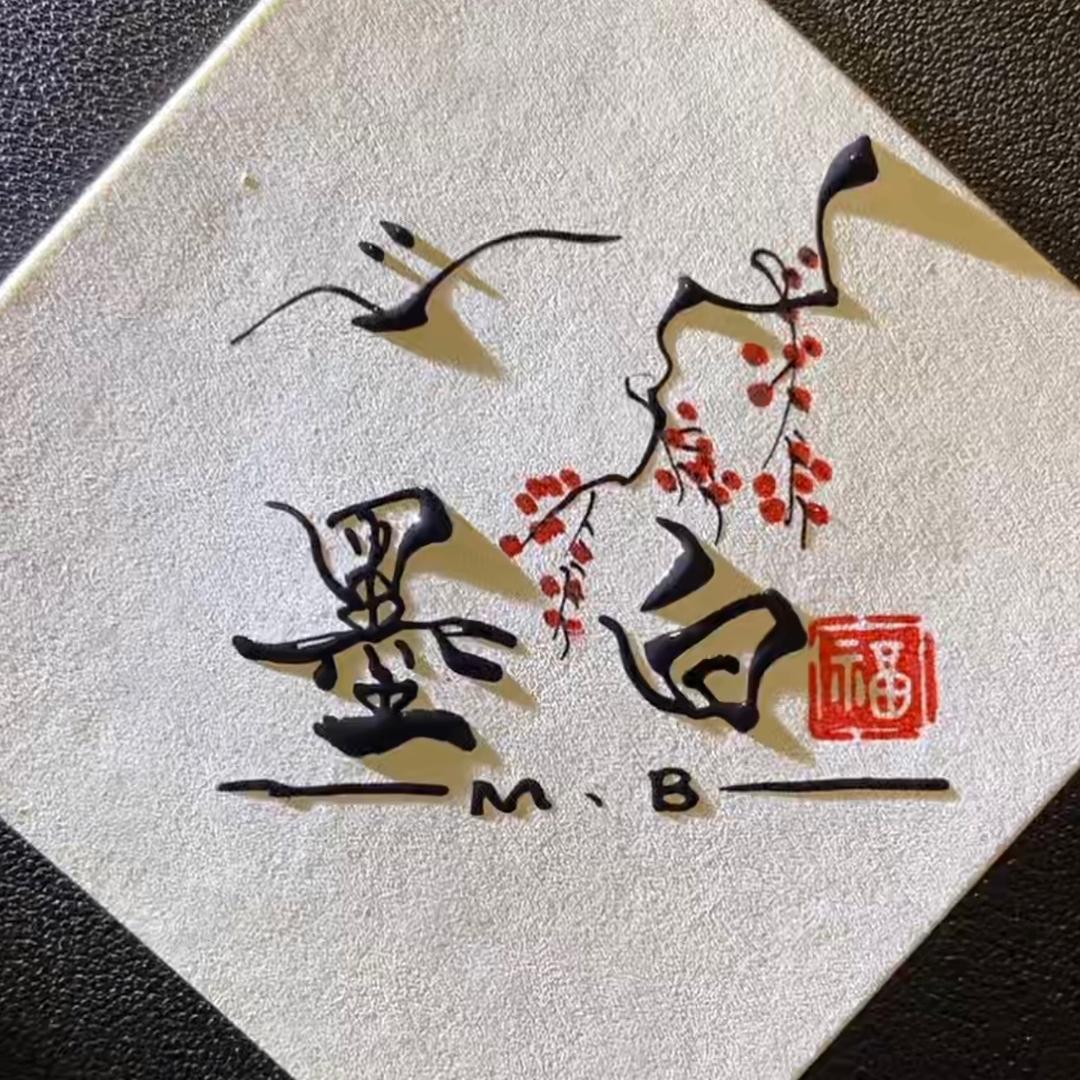 墨白
福
M、B